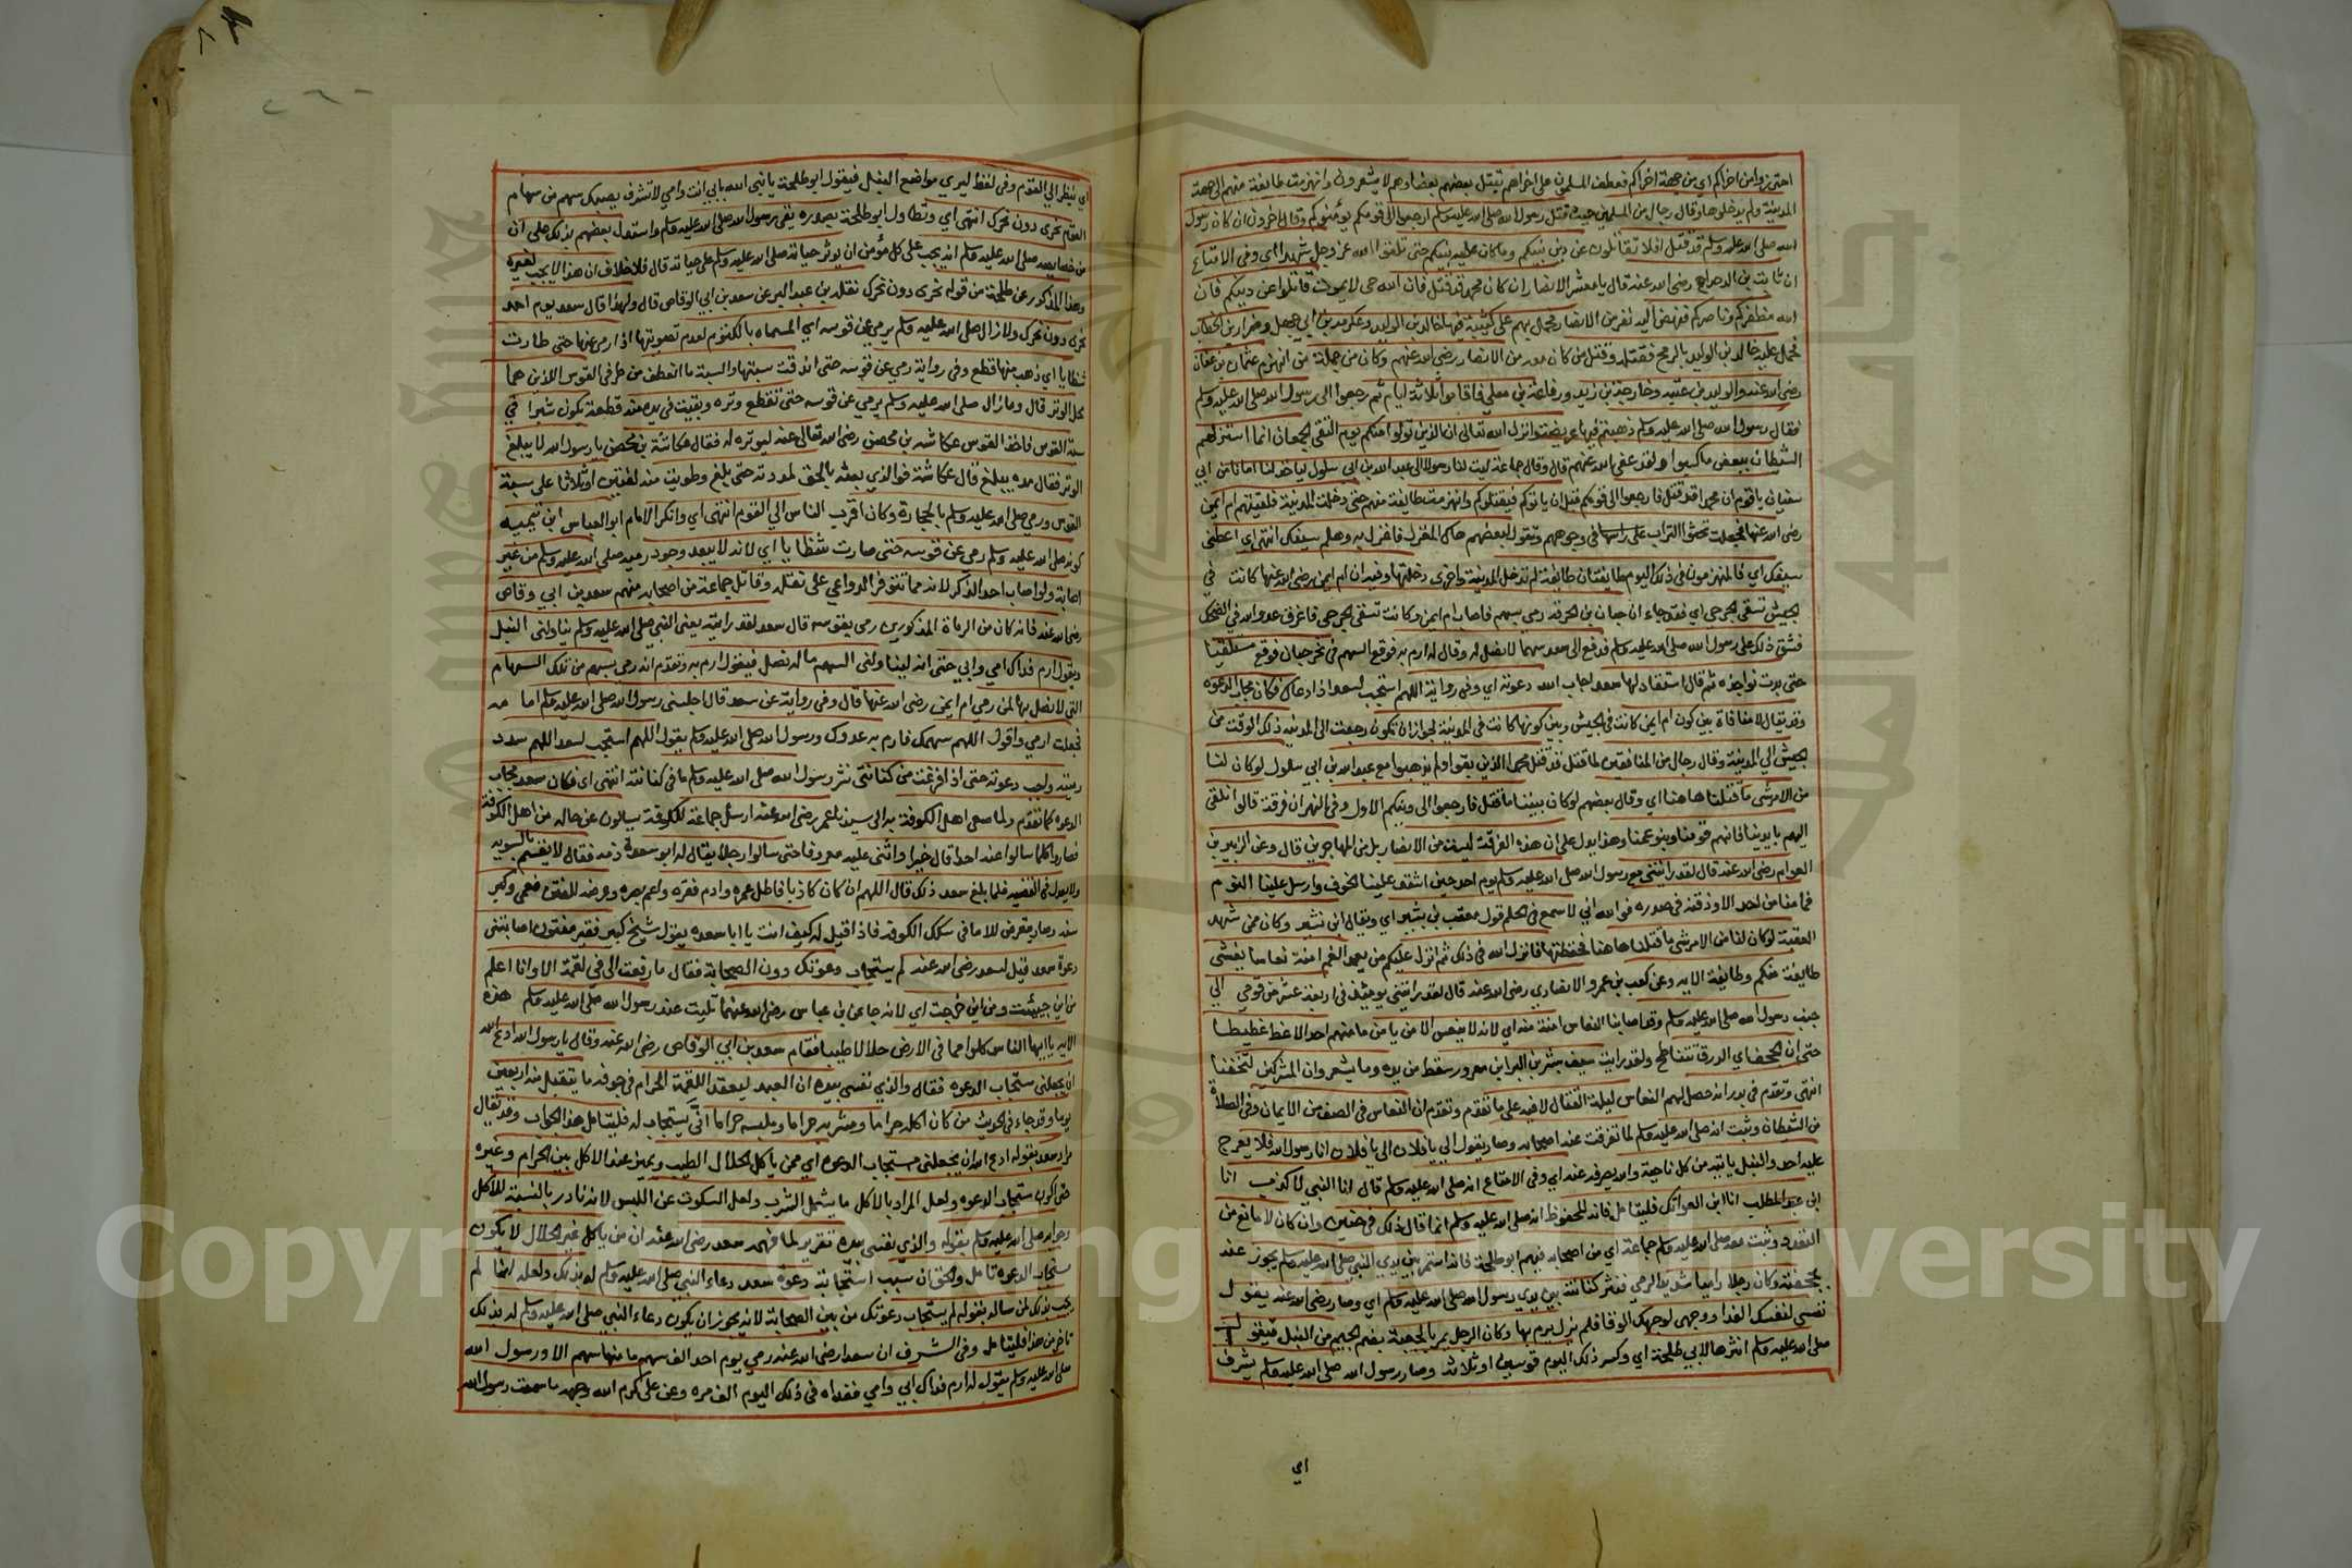 احترزوا من اخراكم اي من جهة اخراكم فعطف المسلمون على اخراهم يقتل بعضهم بعضا وهم لا يشعرون وانهزمت طايفة منهم الى جهة
المدينة ولم يدخلوها وقال رجال من المسلمين حيث قتل رسول الله صلى الله عليه وسلم ارجعوا الى قومكم يؤمنوكم وقال اخرون ان كان رسول
الله صلى الله عليه وسلم قد قتل افلا تقاتلون عن دين نبيكم وما كان عليه نبيكم حتى تلقوا الله عز وجل شهدا اي وفي الامتاع
ان ثابت بن الدحداح رضي الله عنه قال يا معشر الانصار ان كان محمد قد قتل فان الله حي لا يموت قاتلوا عن دينكم فان
الله مظفركم وناصركم فنهض اليه نفر من الانصار فحمل بهم على كتيبة فيها خالد بن الوليد وعكرمة بن ابي جهل وضرار بن الخطاب
فحمل عليه خالد بن الوليد بالرمح فقتله وقتل من كان معه من الانصار رضي الله عنهم وكان من جملة من انهزم عثمان بن عفان
رضي الله عنه والوليد بن عقبه وخارجة بن زيد ورفاعة بن معلى فاقاموا ثلاثة ايام ثم رجعوا الى رسول الله صلى الله عليه وسلم
فقال رسول الله صلى الله عليه وسلم ذهبتم فيها عريضة وانزل الله تعالى ان الذين تولوا منكم يوم التقى الجمعان انما استزلهم
الشيطان ببعض ما كسبوا ولقد عفى الله عنهم قال وقال جماعة ليت لنا رسولا الى عبد الله بن ابي سلول لياخذ لنا امانا من ابي
سفيان يا قوم ان محمدا قد قتل فارجعوا الى قومكم قبل ان ياتوكم فيقتلوكم وانهزمت طايفة منهم حتى دخلت المدينة فلقيتهم ام ايمن
رضي الله عنها فجعلت تحثوا التراب على راسها في وجوههم وتقول لبعضهم هاك المغزل فاغزل به وهلم سيفك انتهى اي اعطني
سيفك اي فالمنهزمون في ذلك اليوم طايفتان طايفة لم تدخل المدينة واخرى دخلتها وفيه ان ام ايمن رضي الله عنها كانت في
الجيش تسقي الجرحى اي فقد جاء ان حبان بن العرقة رمى بسهم فاصاب ام ايمن وكانت تسقي الجرحى فاغرق عدو الله في الضحك
فشق ذلك على رسول الله صلى الله عليه وسلم فدفع الى سعد سهما لا نصل له وقال له ارم به فوقع السهم في نحر حبان فوقع مستلقيا
حتى بدت نواجذه ثم قال استقاد لها سعد اجاب الله دعوته اي وفي رواية اللهم استجب لسعد اذا دعاك فكان مجاب الدعوه
وقد يقال لا منافاة بين كون ام ايمن كانت في الجيش وبين كونها كانت في المدينة لجواز ان تكون رجعت الى المدينه ذلك الوقت من
الجيش الى المدينة وقال رجال من المنافقين لما قتل قد قتل محمد الذين بقوا ولم يذهبوا مع عبد الله بن ابي سلول لو كان لنا
من الامر شي ما قتلنا هاهنا اي وقال بعضهم لو كان نبينا ما قتل فارجعوا الى دينكم الاول وفي النهر ان فرقة قالوا نلقي
اليهم بايدينا فانهم قومنا وبنو عمنا وهذا يدل على ان هذه الفرقة ليست من الانصار بل من المهاجرين قال وعن الزبير بن
العوام رضي الله عنه قال لقد رايتني مع رسول الله صلى الله عليه وسلم يوم احد حين اشتد علينا الخوف وارسل علينا النوم
فما منا من احد الا وذقنه في صدره فوالله اني لاسمع في الحلم قول معتب بن بشير اي ويقال ابن قشير وكان ممن شهد
العقبة لو كان لنا من الامر شي ما قتلنا هاهنا فحفظتها فانزل الله في ذلك ثم انزل عليكم من بعد الغم امنة نعاسا يغشى
طايفة منكم وطايفة الايه وعن كعب بن عمرو الانصاري رضي الله عنه قال لقد رايتني يومئذ في اربعة عشر من قومي الى
جنب رسول الله صلى الله عليه وسلم وقد اصابنا النعاس امنة منه اي لانه لا ينعس الا من يامن ما منهم احد الا غط غطيطا
حتى ان الجحف اي الدرق تتناطح ولقد رايت سيف بشر بن البرا بن معرور سقط من يده وما يشعر وان المشركين لتحثنا
انتهى وتقدم في بدر انه حصل لهم النعاس ليلة القتال لا فيه على ما تقدم وتقدم ان النعاس في الصف من الايمان وفي الصلاة
من الشيطان وثبت انه صلى الله عليه وسلم لما تفرقت عنه اصحابه وصار يقول الي يا فلان الي يا فلان انا رسول الله فلا يعرج
عليه احد والنبل ياتيه من كل ناحية والله يصرفه عنه اي وفي الامتاع انه صلى الله عليه وسلم قال انا النبي لا كذب انا
ابن عبد المطلب انا ابن العواتك فليتامل فانه المحفوظ انه صلى الله عليه وسلم انما قال ذلك في حنين وان كان لا مانع من
التعدد وثبت معه صلى الله عليه وسلم جماعة اي من اصحابه فيهم ابو طلحة فانه استمر بين يدي النبي صلى الله عليه وسلم يحوز عنه
بجحفته وكان رجلا راميا شديد الرمي فنثر كنانته بين يدي رسول الله صلى الله عليه وسلم اي وصار رضي الله عنه يقول
نفسي لنفسك الفدا ووجهي لوجهك الوقا فلم يزل يرم بها وكان الرجل يمر بالجعبة بفتح الجيم من النبل فيقول
صلى الله عليه وسلم انثرها لابي طلحة اي وكسر ذلك اليوم قوسين او ثلاثه وصار رسول الله صلى الله عليه وسلم يشرف
اي
اي ينظر الى القوم وفي لفظ ليرى مواضع النبل فيقول ابو طلحة يا نبي الله بابي انت وامي لا تشرف يصيبك سهم من سهام
القوم نحري دون نحرك انتهى اي وتطاول ابو طلحة بصدره يقي رسول الله صلى الله عليه وسلم واستدل بعضهم بذلك على ان
من خصايصه صلى الله عليه وسلم انه يجب على كل مؤمن ان يوثر حياته صلى الله عليه وسلم على حياته قال فلا خلاف ان هذا لا يجب لغيره
وهذا المذكور عن طلحة من قوله نحري دون نحرك نقله بن عبد البر عن سعد بن ابي الوقاص قال ولهذا قال سعد يوم احد
نحري دون نحرك ولا زال صلى الله عليه وسلم يرمي عن قوسه اي المسماه بالكتوم لعدم تصويتها اذا رمي عنها حتى طارت
شظايا اي ذهب منها قطع وفي رواية رمى عن قوسه حتى اندقت سيتها والسية ما انعطف من طرفي القوس اللذين هما
محل الوتر قال وما زال صلى الله عليه وسلم يرمي عن قوسه حتى تقطع وتره وبقيت في يده منه قطعة تكون شبرا في
سية القوس فاخذ القوس عكاشه بن محصن رضي الله تعالى عنه ليوتره له فقال عكاشة بن محصن يا رسول الله لا يبلغ
الوتر فقال مده يبلغ قال عكاشة فوالذي بعثه بالحق لمددته حتى بلغ وطويت منه لفتين او ثلاثا على سية
القوس ورمى صلى الله عليه وسلم بالحجارة وكان اقرب الناس الى القوم انتهى اي وانكر الامام ابو العباس ابن تيمية
كونه صلى الله عليه وسلم رمى عن قوسه حتى صارت شظايا اي لانه لا يبعد وجود رميه صلى الله عليه وسلم من غير
اصابة ولو اصاب احد الذكر لانه مما تتوفر الدواعي على نقله وقاتل جماعة من اصحابه منهم سعد بن ابي وقاص
رضي الله عنه فانه كان من الرماة المذكورين رمى بقوسه قال سعد لقد رايته يعني النبي صلى الله عليه وسلم يناولني النبل
ويقول ارم فداك امي وابي حتى انه ليناولني السهم ما له نصل فيقول ارم به وتقدم انه رمى بسهم من تلك السهام
التي لا نصل بها لمن رمى ام ايمن رضي الله عنها قال وفي رواية عن سعد قال اجلسني رسول الله صلى الله عليه وسلم امامه
فجعلت ارمي واقول اللهم سهمك فارم به عدوك ورسول الله صلى الله عليه وسلم يقول اللهم استجب لسعد اللهم سدد
رميته واجب دعوته حتى اذا فرغت من كنانتي نثر رسول الله صلى الله عليه وسلم ما في كنانته انتهى اي فكان سعد مجاب
الدعوه كما تقدم ولما سعى اهل الكوفة به الى سيدنا عمر رضي الله عنه ارسل جماعة للكوفة يسالون عن حاله من اهل الكوفة
فصاروا كلما سالوا عنه احدا قال خيرا واثنى عليه معروفا حتى سالوا رجلا يقال له ابو سعدة ذمه فقال لا يقسم بالسويه
ولا يعدل في القضيه فلما بلغ سعد ذلك قال اللهم ان كان كاذبا فاطل عمره وادم فقره واعم بصره وعرضه للفتن فعمي وكبر
سنه وصار يتعرض للاما في سكك الكوفة فاذا قيل له كيف انت يا ابا سعده يقول شيخ كبير فقير مفتون اصابتني
دعوة سعد قيل لسعد رضي الله عنه لم يستجاب دعوتك دون الصحابة فقال ما رفعت الى في لقمة الا وانا اعلم
من اين جيئت ومن اين خرجت اي لانه جا عن بن عباس رضي الله عنهما تليت عند رسول الله صلى الله عليه وسلم هذه
الايه ياايها الناس كلوا مما في الارض حلالا طيبا فقام سعد بن ابي الوقاص رضي الله عنه وقال يا رسول الله ادع الله
ان يجعلني مستجاب الدعوه فقال والذي نفسي بيده ان العبد ليعقد اللقمة الحرام في جوفه ما يتقبل منه اربعين
يوما وقد جاء في الحديث من كان اكله حراما ومشربه حراما وملبسه حراما انى يستجاب له فليتامل هذا الجواب وقد يقال
مراد سعد بقوله ادع الله ان يجعلني مستجاب الدعوه اي ممن ياكل الحلال الطيب ويميز عند الاكل بين الحرام وغيره
حتى اكون مستجاب الدعوه ولعل المراد بالاكل ما يشمل الشرب ولعل السكوت عن اللبس لانه نادر بالنسبة للاكل
وجوابه صلى الله عليه وسلم بقوله والذي نفسي بيده تقرير لما فهمه سعد رضي الله عنه ان من ياكل غير الحلال لا يكون
مستجاب الدعوه تامل والحق ان سبب استجابة دعوة سعد دعاء النبي صلى الله عليه وسلم له بذلك ولعله انما لم
يجب بذلك لمن ساله بقوله لم يستجاب دعوتك من بين الصحابة لانه يجوز ان يكون دعاء النبي صلى الله عليه وسلم له بذلك
تاخر عن هذا فليتامل وفي الشرف ان سعدا رضي الله عنه رمى يوم احد الف سهم ما منها سهم الا ورسول الله
صلى الله عليه وسلم يقول له ارم فداك ابي وامي ففداه في ذلك اليوم الف مره وعن علي كرم الله وجهه ما سمعت رسول الله
Copyright © King Saud University